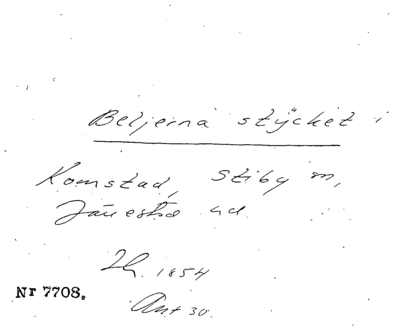 Beljerna stycket i
Komstad, Stiby m,
Järresta hd.
Lh. 1854
Nr 7708.
Ant 30.